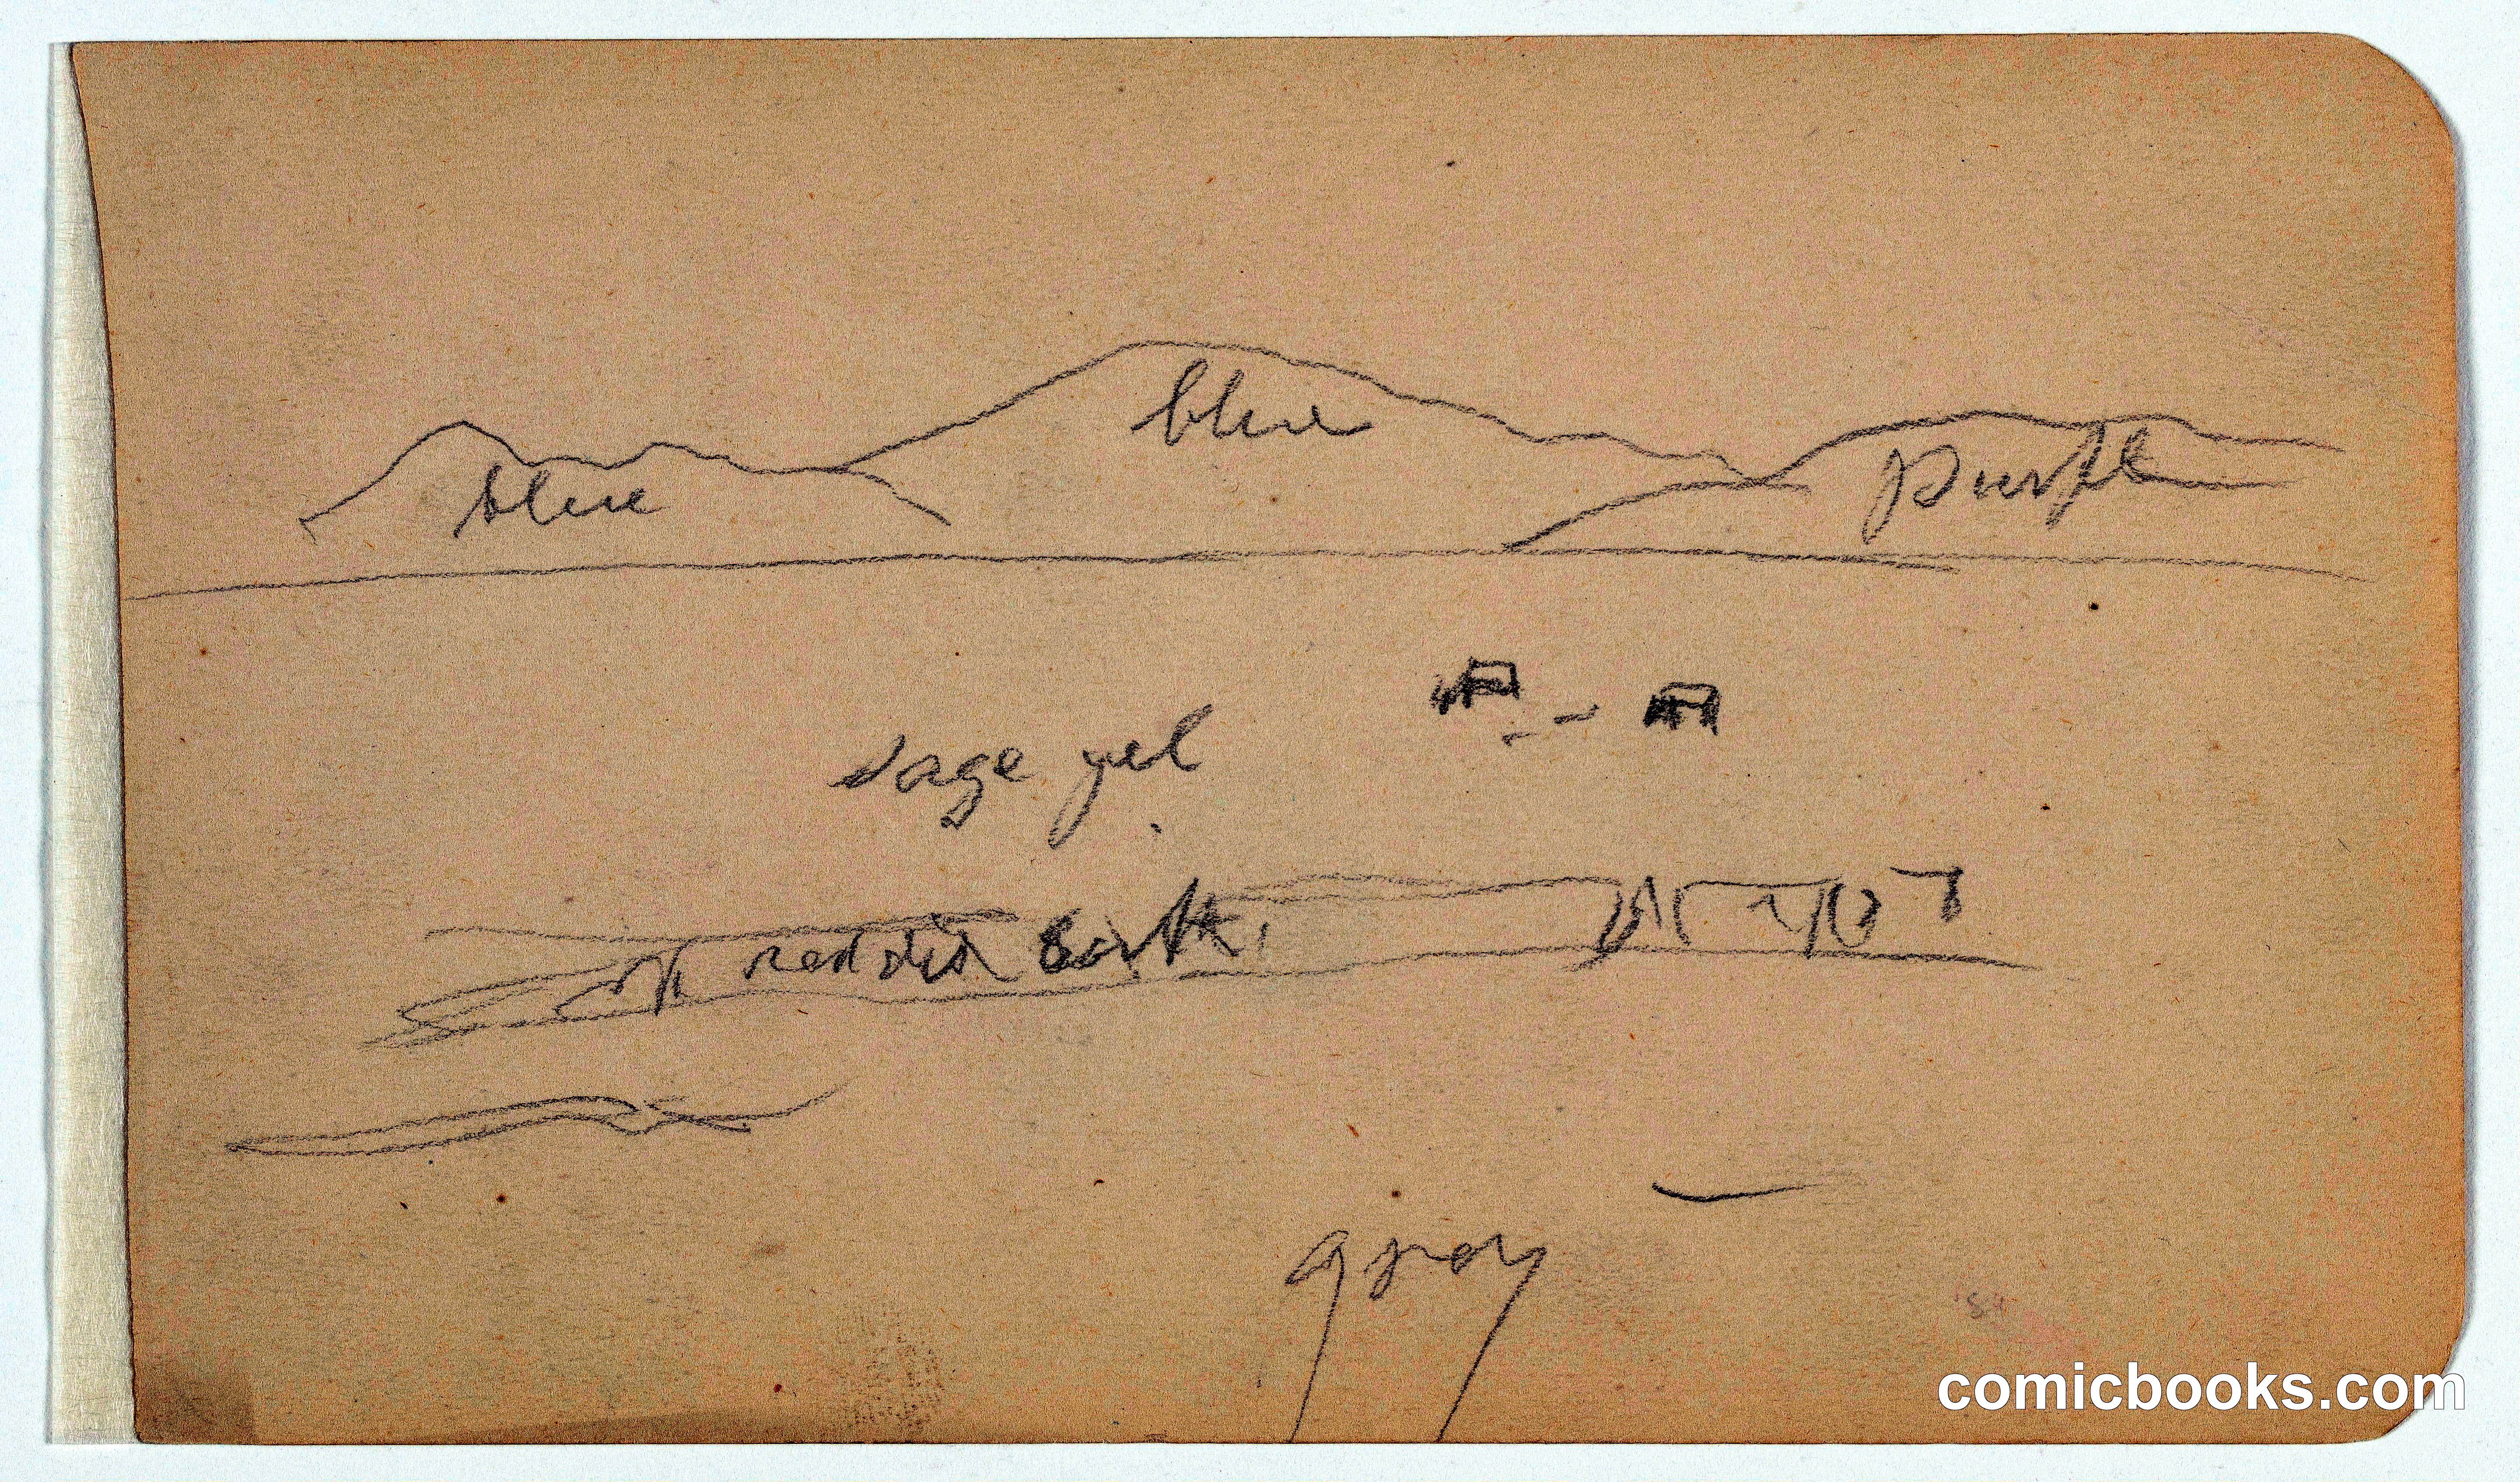 blue
blue
purple
sage yel
reddish Earth
gray
comicbooks.com